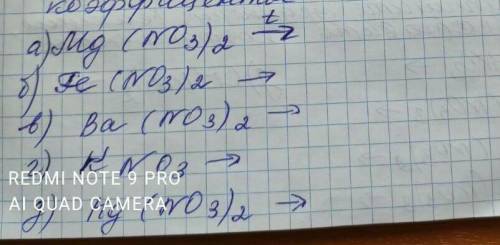 коэффициенты
а) Mg (NO3)2 t→
б) Fe (NO3)2 →
в) Ba (NO3)2 →
г) K NO3 →
REDMI NOTE 9 PRO
AI QUAD CAMERA
д) Hg (NO3)2 →